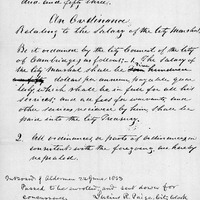 and fifty three.
An Ordinance
Relating to the Salary of the City Marshal.
Be it ordained by the City Council of the City
of Cambridge as follows:- 1. The Salary of
the City Marshal shall be
dollars per annum, payable quar-
terly which shall be in full for all his
services; and all fees for warrants and
other services received by him, shall be
paid into the Treasury.
2. All ordinances or parts of ordinances in-
consistent with the foregoing are hereby
repealed.
In Board of Aldermen 22 June 1853
Passed to be ordained, and sent down for
concurrence. Lucius R. Paige, City Clerk